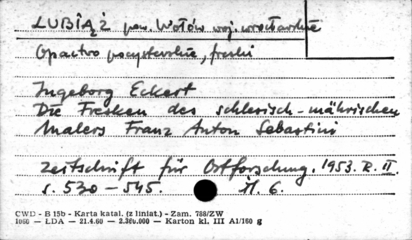 LUBIĄŻ pow. Wołów woj. wrocławskie
Opactwo pocysterskie, freski
Ingeborg Eckert
Die Fresken des schlesisch-mährischen
Malers Franz Anton Sebastini
Zeitschrift für Ostforschung. 1953. R. II.
s. 530-545. il. 6.
CWD - B 15b - Karta katal. (z liniat.) - Zam. 788/ZW
1960 — ŁDA — 21.4.60 — 2.300.000 — Karton kl. III A1/160 g